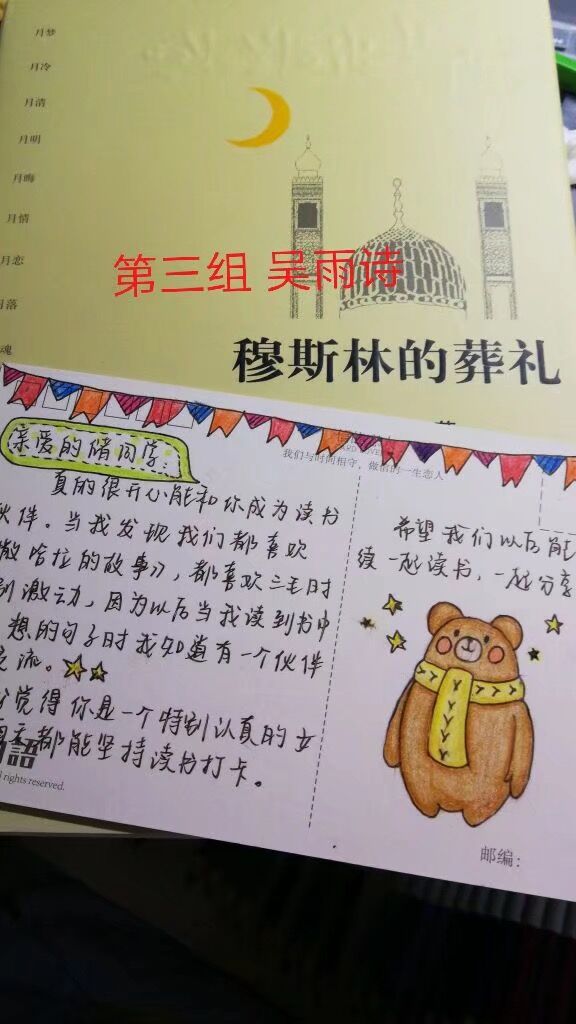 月梦
月冷
月清
月明
月晦
月情
月恋
月落
魂
第三组 吴雨诗
穆斯林的葬礼
我们与时间相守，做信的一生恋人
亲爱的储同学：
真的很开心能和你成为读书
伙伴。当我发现我们都喜欢
撒哈拉的故事》，都喜欢三毛时
别激动，因为以后当我读到书中
想的句子时我知道有一个伙伴
交流。
觉得你是一个特别认真的女
都能坚持读书打卡。
語
rights reserved.
希望我们以后能
续一起读书，一起分享
邮编：